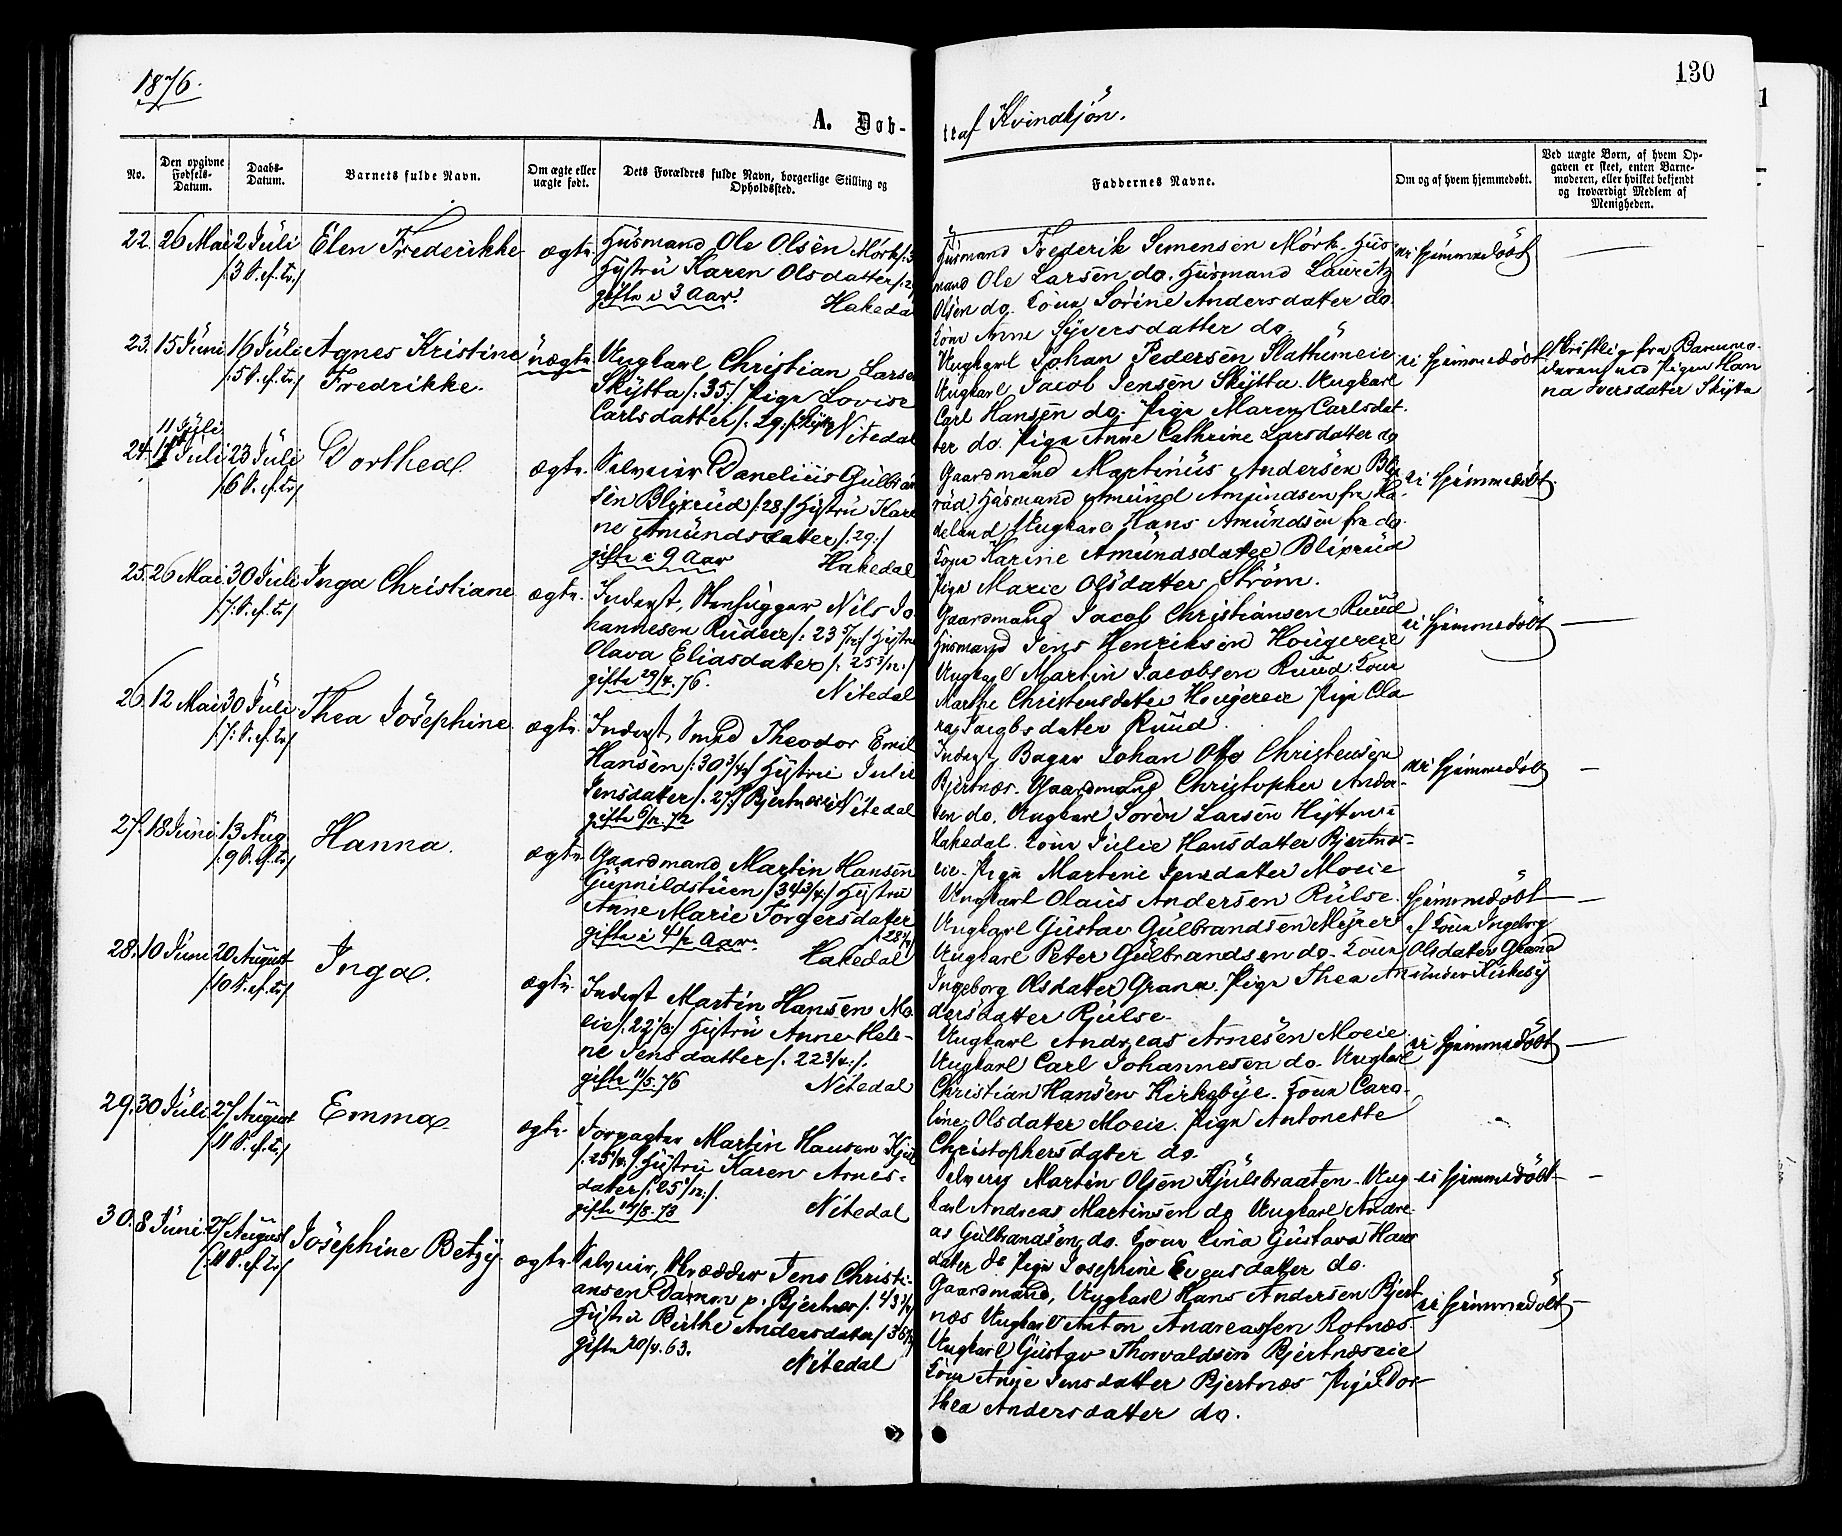 1876.
130
A. Døb-
te af Kvindkjön.
No.
Den opgivne Fødsels-Datum.
Daabs-Datum.
Barnets fulde Navn.
Om ægte eller uægte født.
Dets Forældres fulde Navn, borgerlige Stilling og Opholdssted.
Faddernes Navne.
Om og af hvem hjemmedøbt.
Ved uægte Børn, af hvem Opgaven er skeet, enten Barnemoderen, eller hvilket bekjendt og troværdigt Medlem af Menigheden.
22. 26 Mai 2 Juli Elen Fredrikke ægte
/:3 S. ef. Tr:/
Husmand Ole Olsen Mörk
Hustru Karen Olsdatter
gifte i 3 Aar. Hakedal
Husmand Frederik Semensen Mörk. Hus-
mand Ole Larsen do. Husmand Lauritz
Olsen do. Kone Sörine Andersdatter do.
Kone Anne Syversdatter do.
ei hjemmedöbt
23. 15 Juni 16 Juli Agnes Kristine uægte
/:5 S. ef. Tr:/ Fredrikke.
Ungkarl Christian Larsen
Skytta /:35:/ Pige Lovise
Carlsdatter /:29:/ Skytta Nitedal
Ungkarl Johan Pedersen Slattumeie
Ungkarl Jacob Jensen Skytta. Ungkarl
Carl Hansen do. Pige Maren Carlsdat-
ter do. Pige Anne Cathrine Larsdatter do
ei hjemmedöbt
Skriftlig fra Barnemo-
deren ved Pigen Han
na Iversdatter Skytta
11 Juli
24. Juli 23 Juli Dorthea ægte.
/:6 S. ef. Tr:/
Selveier Danelius Gulbran
sen Blixrud /:28:/ Hustru Kare
ne Amundsdatter /:29:/
gifte i 9 Aar Hakedal
Gaardmand Martinus Andersen Blix
rud, Husmand Amund Amundsen fra Ha-
deland, Ungkarl Hans Amundsen fra do.
Kone Karine Amundsdatter Blixrud
Pige Marie Olsdatter Ström.
ei hjemmedöbt.
25. 26 Mai 30 Juli Inga Christiane ægte.
/:7 S. ef. Tr:/
Inderst, Stenhugger Nils Jo
hannesen Rudeie /:23 5/12:/ Hustru
Olava Eliasdatter /:25 3/12:/
gifte 29/4. 76. Nitedal
Gaardmand Jacob Christiansen Ruud
Husmand Jens Henriksen Hougereie
Ungkarl Martin Jacobsen Ruud Kone
Marthe Christensdatter Hougereie Pige Cla
ra Jacobsdatter Ruud
ei hjemmedöbt
26. 12 Mai 30 Juli Thea Josephine ægte.
/:7 S. ef. Tr:/
Inderst, Smed Theodor Emil
Hansen /:30 3/4:/ Hustru Julie
Jensdatter /:27:/ Bjertneseie Nitedal
gifte 6/12. 72
Inderst, Bager Johan Otto Christensen
Bjertnæs. Gaardmand Christopher Ander-
sen do. Ungkarl Sören Larsen Hytten i
Hakedal. Kone Julie Hansdatter Bjertnæs-
eie. Pige Martine Jensdatter Moeie
ei hjemmedöbt
27. 18 Juni 13 Aug. Hanna. ægte
/:9 S. ef. Tr:/
Gaardmand Martin Hansen
Gunnildstuen /:34 3/4:/ Hustru
Anne Marie Torgersdatter
gifte i 4 1/2 Aar. Hakedal
Ungkarl Olaus Andersen Rulse.
Ungkarl Gustav Gulbrandsen Myrer
Ungkarl Peter Gulbrandsen do. Kone
Ingeborg Olsdatter Grana. Pige Thea An
dersdatter Rulse.
hjemmedöbt
af Kone Ingeborg
Olsdatter Grana
under Kirkeby
28. 10 Juni 20 August Inga. ægte
/:10 S. ef. Tr:/
Inderst Martin Hansen Mo-
eie /:22 1/3:/ Hustru Anne Hele-
ne Jensdatter /:22 3/4:/.
gifte 11/5. 76 Nitedal
Ungkarl Andreas Arnesen Moeie.
Ungkarl Carl Johannesen do. Ungkarl
Christian Hansen Kirkebye. Kone Caro-
line Olsdatter Moeie. Pige Antonette
Christophersdatter do.
ei hjemmedöbt
29. 30 Juli 27 August Emma ægte.
/:11 S. ef. Tr:/
Forpagter Martin Hansen
Hustru Karen Arnes-
datter /:25 1/12:/.
Nitedal
Selveier Martin Olsen Kjulsbraaten. Ung-
karl Andreas Martinsen do Ungkarl Andre-
as Gulbrandsen do. Kone Lina Gustava Hans
datter do Pige Josephine Evensdatter do.
ei hjemmedöbt
30. 8 Juni 27 August Josephine Betzy. ægte.
/:11 S. ef. Tr:/
Selveier, Skrædder Jens Christi-
ansen Damen p. Bjertnæs
Hustru Berthe Andersdatter
gifte 20/4. 63. Nitedal
Gaardmand, Ungkarl Hans Andersen Bjert
næs Ungkarl Anton Andreassen Rotnæs.
Ungkarl Gustav Thorvaldsen Bjertnæseie
Kone Anne Jensdatter Bjertnæs Pige Dor
thea Andersdatter do.
ei hjemmedöbt